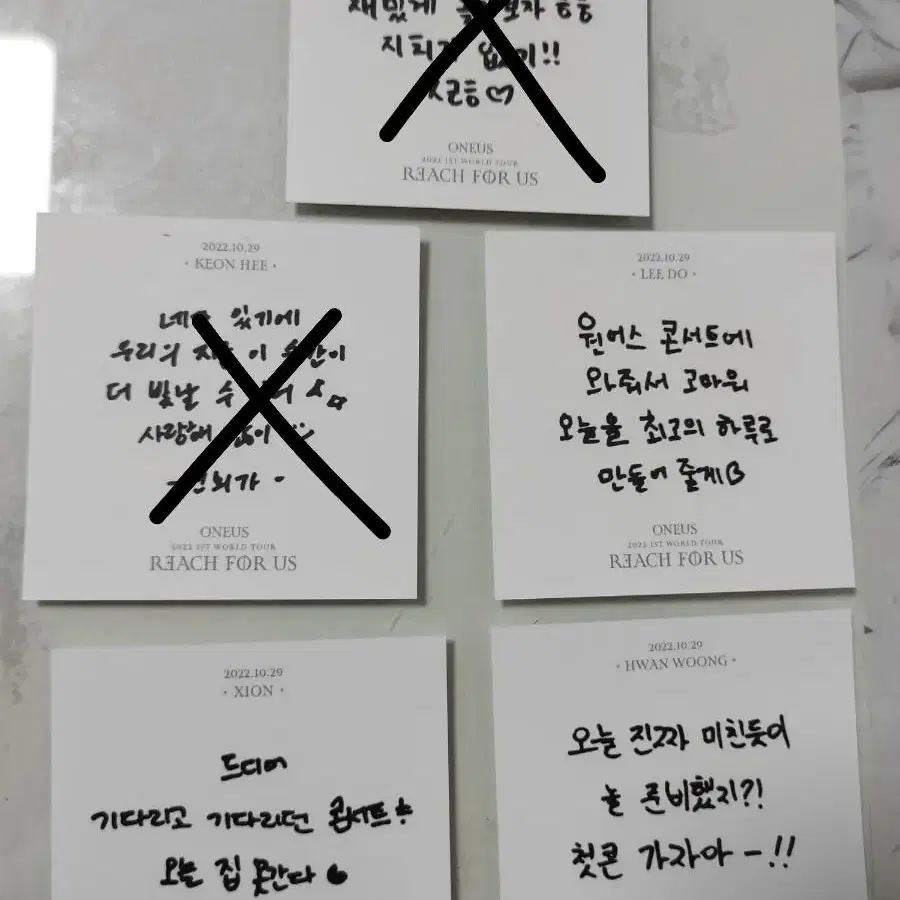 재밌게 보자 흥흥
지 없기!!
ONEUS
2022 1ST WORLD TOUR
REACH FOR US
2022.10.29
· KEON HEE ·
있기에
우리의 이
더 빛날 수
사랑해
ONEUS
2022 1ST WORLD TOUR
REACH FOR US
2022.10.29
· LEE DO ·
원어스 콘서트에
와줘서 고마워
오늘을 최고의 하루로
만들어 줄게
ONEUS
2022 1ST WORLD TOUR
REACH FOR US
2022.10.29
· XION ·
드디어
기다리고 기다리던 콘서트
오늘 집 못간다
2022.10.29
· HWAN WOONG ·
오늘 진짜 미친듯이
놀 준비했지?!
첫콘 가자아 - !!